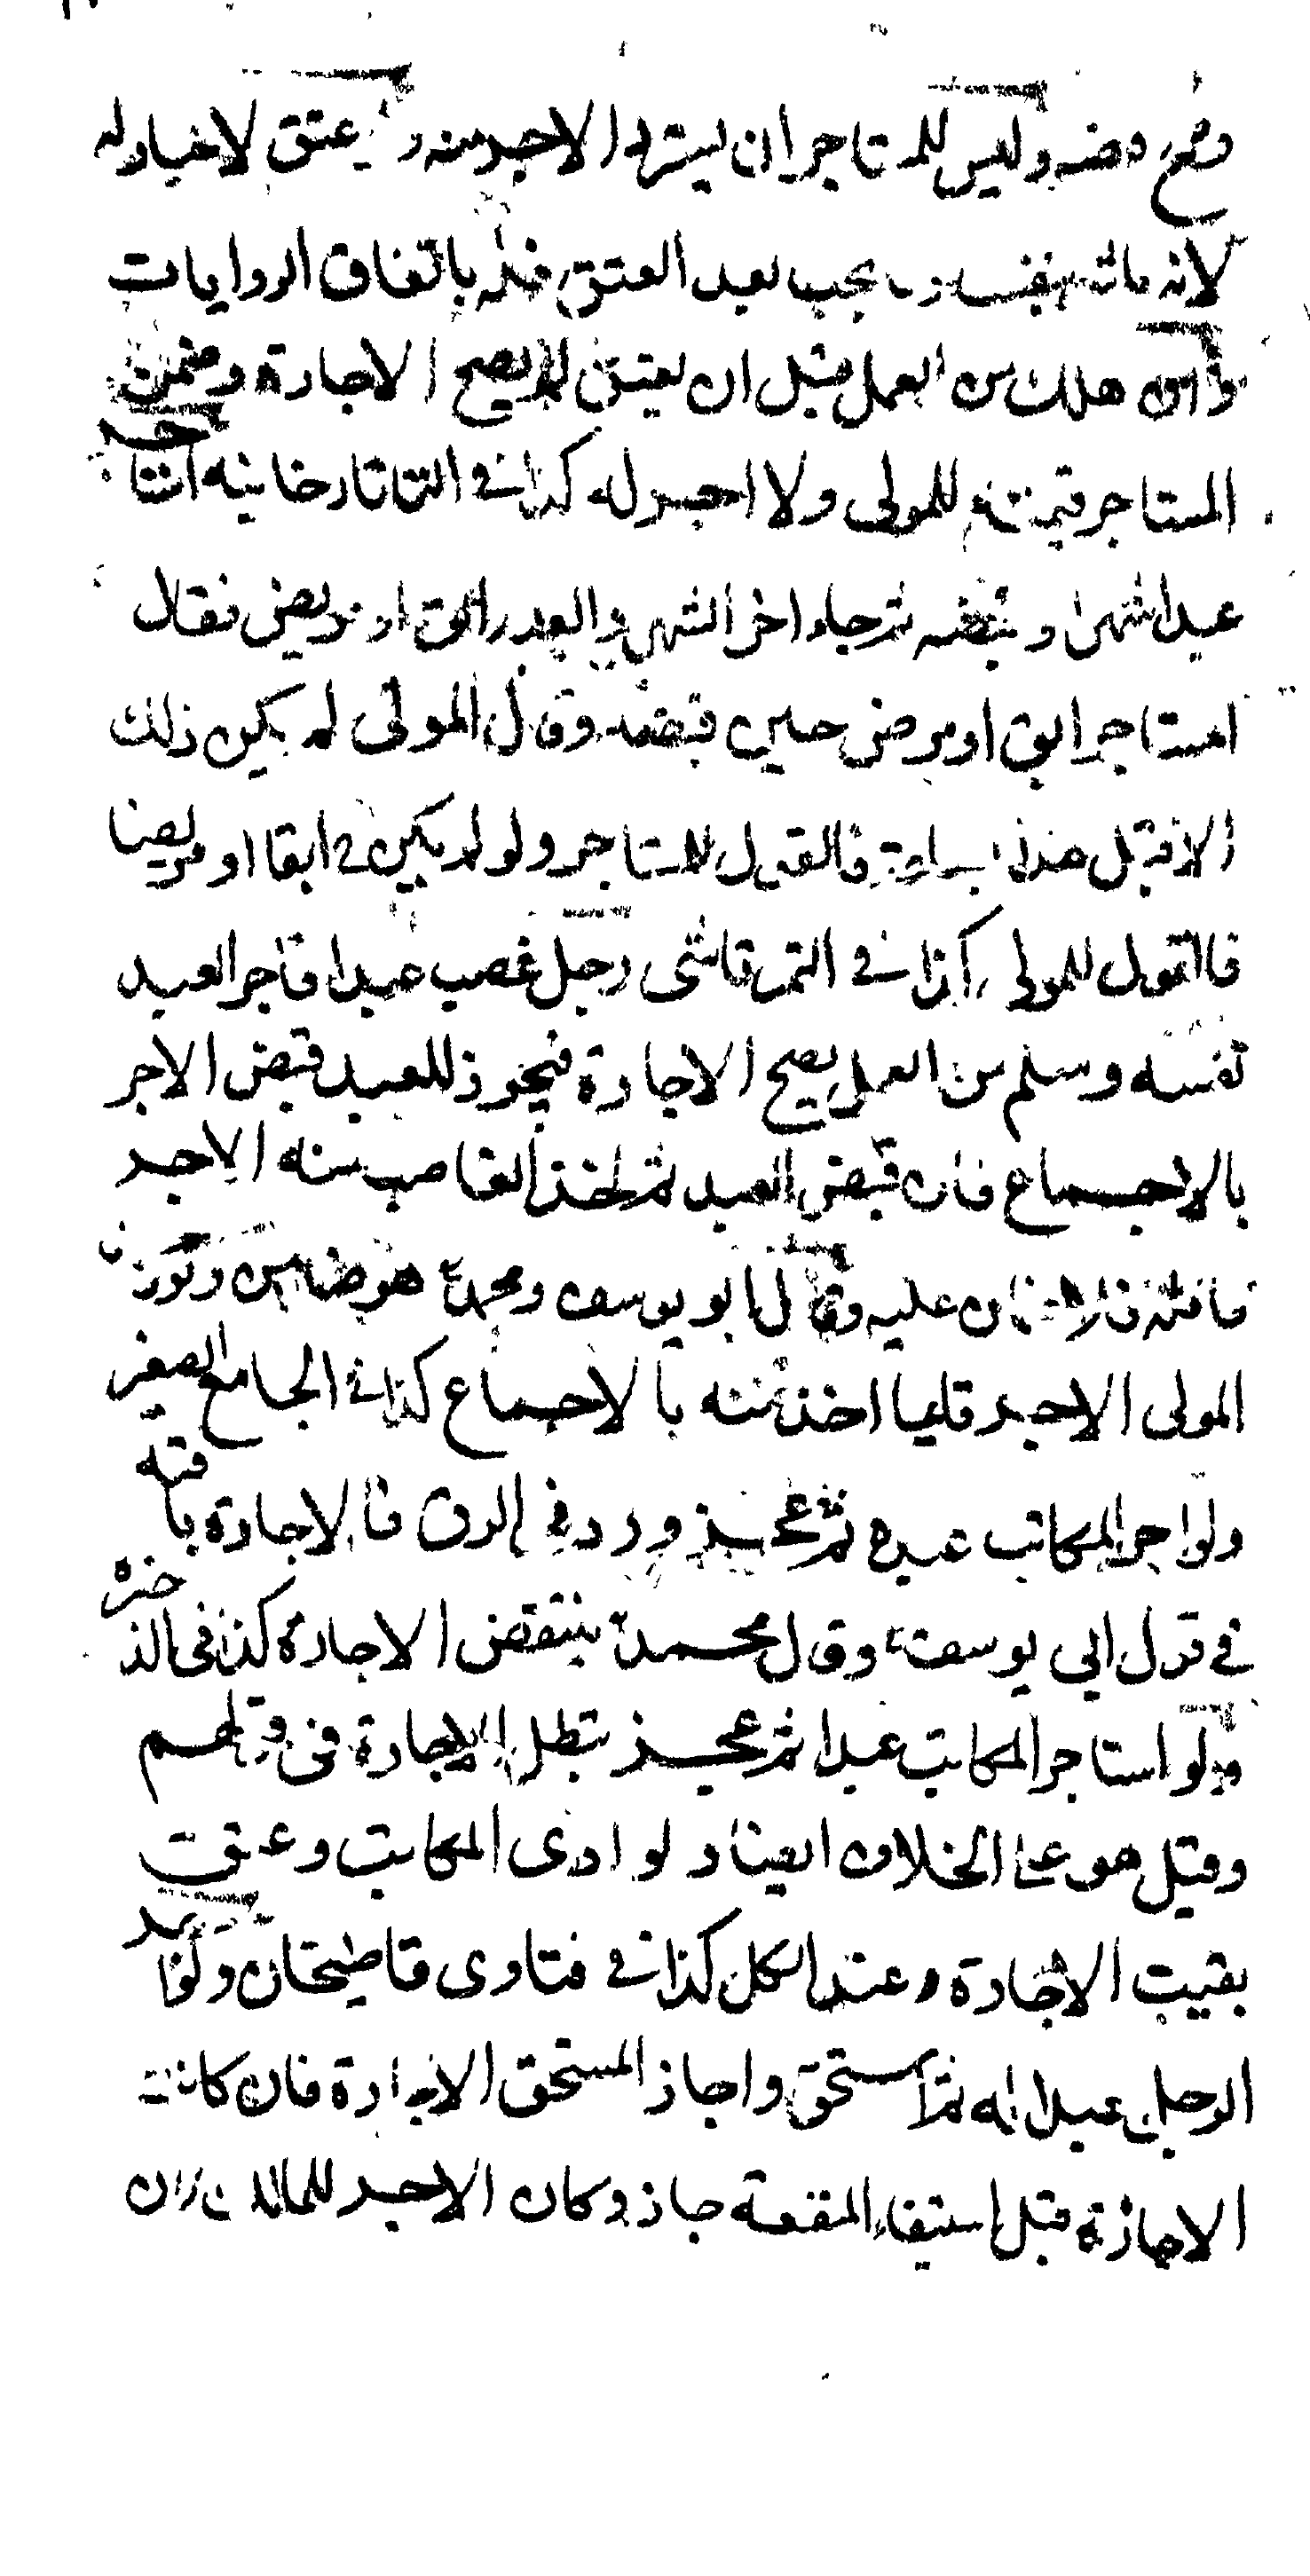 وصح قبضه وليس للمستاجر ان يسترد الاجر منه ولو عتق لا خيار له
لانه باشر بنفسه وما يجب بعد العتق فله باتفاق الروايات
وان هلك من العمل قبل ان يعتق لا يصح الاجارة وضمن
المستاجر قيمته للمولى ولا اجر له كذا في التاتارخانية استاجر
عبدا شهرا وقبضه ثم جاء اخر الشهر والعبد ابق او مريض فقال
المستاجر ابق او مرض حين قبضه وقال المولى لم يكن ذلك
الا قبل هذا بساعة فالقول للمستاجر ولو لم يكن ابقا او مريضا
فالقول للمولى كذا في التمرتاشي رجل غصب عبدا فاجر العبد
نفسه وسلم من العمل يصح الاجارة فيجوز للعبد قبض الاجر
بالاجماع فان قبض العبد ثم اخذ الغاصب منه الاجر
فاتلفه فلا ضمان عليه وقال ابو يوسف ومحمد هو ضامن ولو وجد
المولى الاجر قايما اخذ منه بالاجماع كذا في الجامع الصغير
ولو اجر المكاتب عبده ثم عجز ورد في الرق فالاجارة باقية
في قول ابي يوسف وقال محمد ينتقض الاجارة كذا في الذخيرة
ولو استاجر المكاتب عبدا ثم عجز تبطل الاجارة في قولهم
وقيل هو على الخلاف ايضا ولو ادى المكاتب وعتق
بقيت الاجارة عند الكل كذا في فتاوى قاضيخان ولو اجر
الرجل عبدا له ثم استحق واجاز المستحق الاجارة فان كانت
الاجازة قبل استيفاء المنفعة جاز وكان الاجر للمالك وان